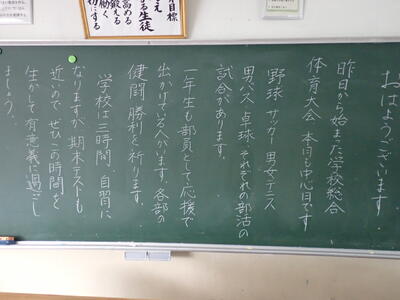 目標
考え
する生徒
高める
鍛える
働く
切にする
おはようございます。
昨日から始まった学校総合
体育大会、本日も中心日です
野球、サッカー、男女テニス
男バス、卓球、それぞれの部活の
試合があります。
一年生も部員として応援で
出かけている人がいます。各部の
健闘、勝利を祈ります。
学校は三時間、自習に
なりますが、期末テストも
近いので、ぜひこの時間を
生かして有意義に過ごし
ましょう。